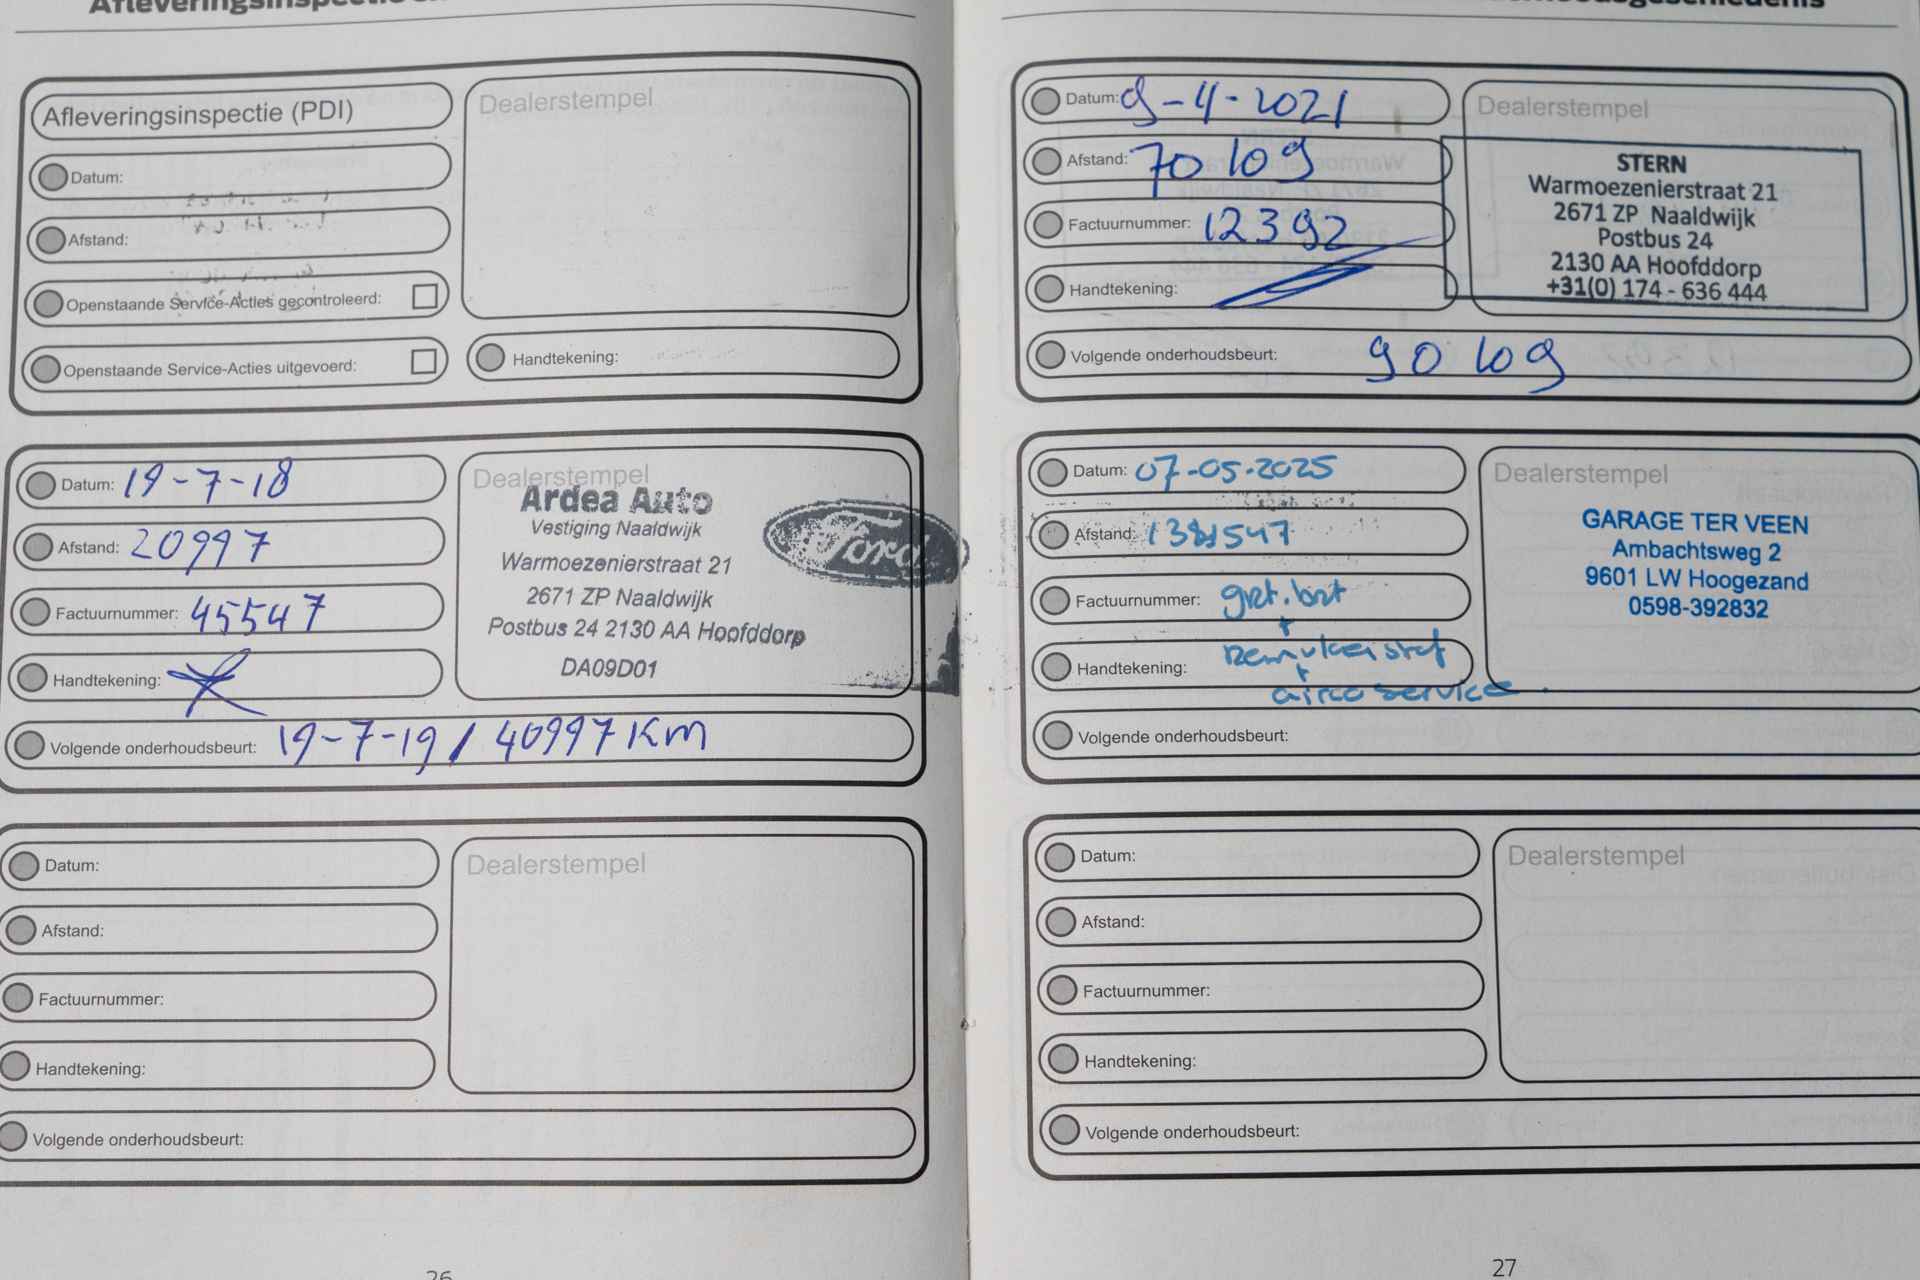 Afleveringsinspectie
Afleveringsinspectie (PDI)
Datum:
Afstand:
Openstaande Service-Acties gecontroleerd:
Openstaande Service-Acties uitgevoerd:
Dealerstempel
Handtekening:
Datum: 19-7-18
Afstand: 20997
Factuurnummer: 45547
Handtekening:
Volgende onderhoudsbeurt: 19-7-19 / 40997 Km
Dealerstempel
Ardea Auto
Vestiging Naaldwijk
Warmoezenierstraat 21
2671 ZP Naaldwijk
Postbus 24 2130 AA Hoofddorp
DA09D01
Ford
Datum:
Afstand:
Factuurnummer:
Handtekening:
Volgende onderhoudsbeurt:
Dealerstempel
26
Datum: 9-4-2021
Afstand: 70109
Factuurnummer: 12392
Handtekening:
Volgende onderhoudsbeurt: 90109
Dealerstempel
STERN
Warmoezenierstraat 21
2671 ZP Naaldwijk
Postbus 24
2130 AA Hoofddorp
+31(0) 174 - 636 444
Datum: 07-05-2025
Afstand:
Factuurnummer: grt. brt
+
Handtekening: Remvloeistof
+
airco service.
Volgende onderhoudsbeurt:
Dealerstempel
GARAGE TER VEEN
Ambachtsweg 2
9601 LW Hoogezand
0598-392832
Datum:
Afstand:
Factuurnummer:
Handtekening:
Volgende onderhoudsbeurt:
Dealerstempel
27